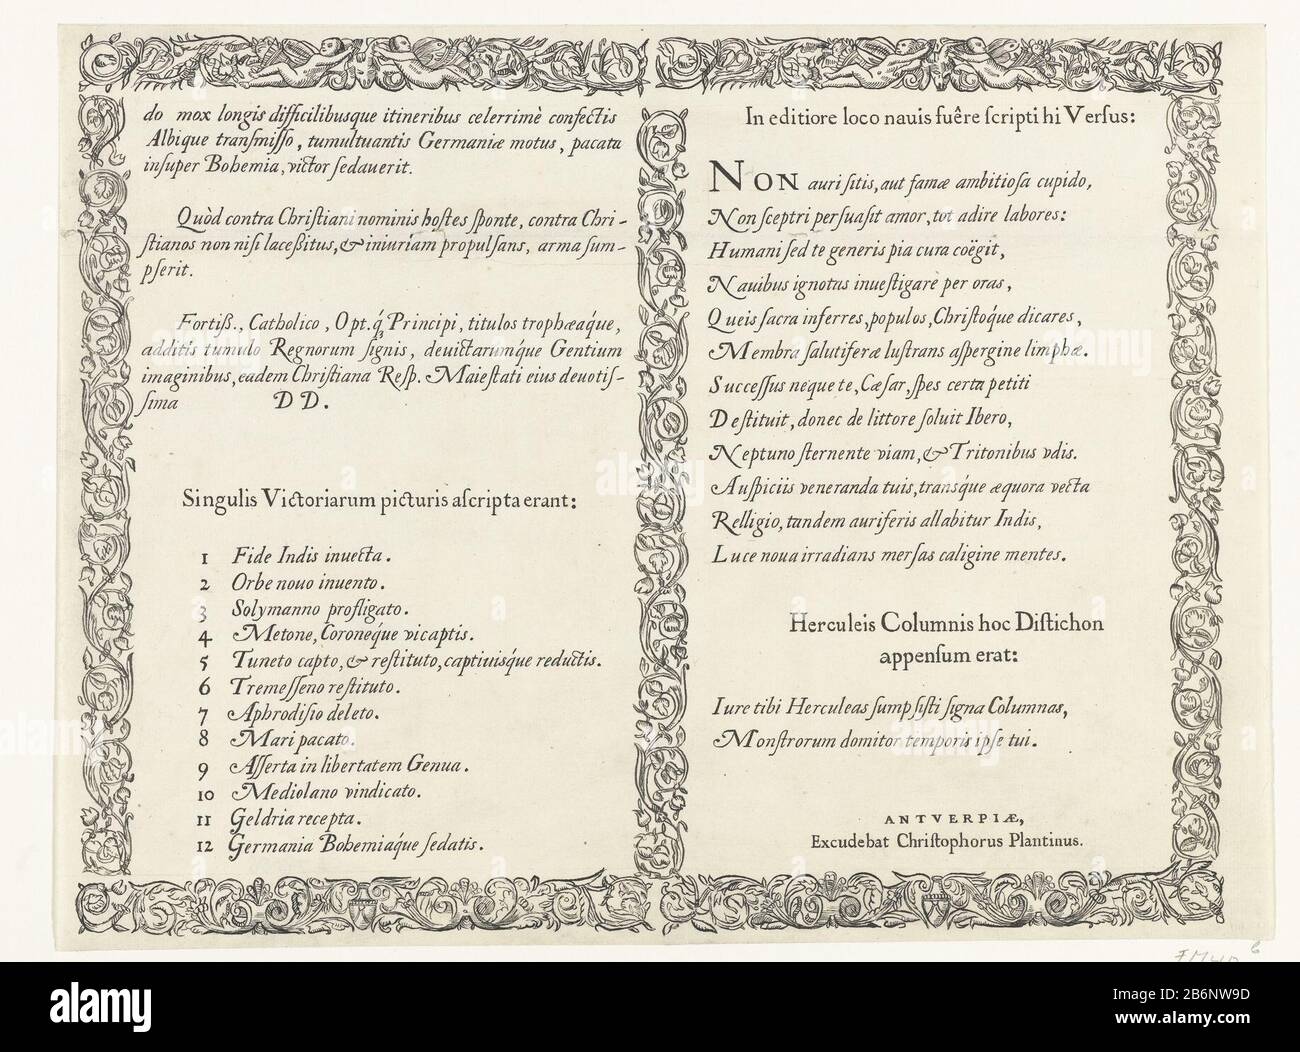 do mox longis difficilibusque itineribus celerrimè confectis
Albique tranſmiſſo, tumultuantis Germaniæ motus, pacata
inſuper Bohemia, victor ſedauerit.
Quòd contra Chriſtiani nominis hoſtes ſponte, contra Chri-
ſtianos non niſi laceßitus, & iniuriam propulſans, arma ſum-
pſerit.
Fortiß., Catholico, Opt. q́; Principi, titulos trophæaq́ue,
additis tumulo Regnorum ſignis, deuictarumq́ue Gentium
imaginibus, eadem Chriſtiana Reſp. Maieſtati eius deuotiſ-
ſima D D.
Singulis Victoriarum picturis aſcripta erant:
1 Fide Indis inuecta.
2 Orbe nouo inuento.
3 Solymanno profligato.
4 Metone, Coroneq́ue vi captis.
5 Tuneto capto, & reſtituto, captiuisq́ue reductis.
6 Tremeſſeno reſtituto.
7 Aphrodiſio deleto.
8 Mari pacato.
9 Aſſerta in libertatem Genua.
10 Mediolano vindicato.
11 Geldria recepta.
12 Germania Bohemiaq́ue ſedatis.
In editiore loco nauis fuêre ſcripti hi Verſus:
NON auri ſitis, aut famæ ambitioſa cupido,
Non ſceptri perſuaſit amor, tot adire labores:
Humani ſed te generis pia cura coëgit,
Nauibus ignotas inueſtigare per oras,
Queis ſacra inferres, populos, Chriſtoq́ue dicares,
Membra ſalutiferæ luſtrans aſpergine limphæ.
Succeſſus neque te, Cæſar, ſpes certa petiti
Deſtituit, donec de littore ſoluit Ibero,
Neptuno ſternente viam, & Tritonibus vdis.
Auſpiciis veneranda tuis, transq́ue æquora vecta
Relligio, tandem auriferis allabitur Indis,
Luce noua irradians merſas caligine mentes.
Herculeis Columnis hoc Diſtichon
appenſum erat:
Iure tibi Herculeas ſumpſiſti ſigna Columnas,
Monſtrorum domitor temporis ipſe tui.
ANTVERPIÆ,
Excudebat Chriſtophorus Plantinus.
alamy
Image ID: 2B6NW9D
www.alamy.com